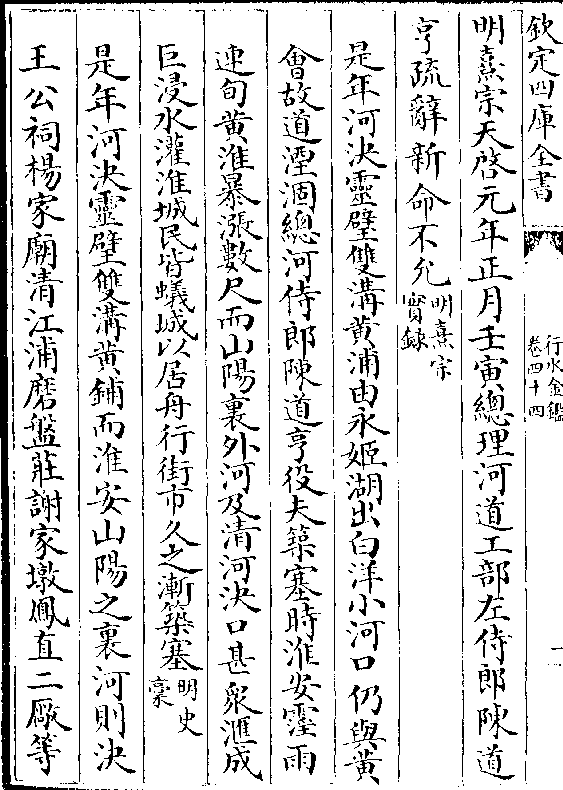 欽定四庫全書
行水金鑑
卷四十四
一
明熹宗天啓元年正月壬寅總理河道工部左侍郎陳道
亨疏辭新命不允明熹宗
實錄
是年河決靈璧雙溝黄浦由永姬湖出白洋小河口仍與黄
會故道湮涸總河侍郎陳道亨役夫築塞時淮安霪雨
連旬黄淮暴漲數尺而山陽裏外河及清河決口甚衆滙成
巨浸水灌淮城民皆蟻城以居舟行街市久之漸築塞明史
稾
是年河決靈壁雙溝黄鋪而淮安山陽之裏河則決
王公祠楊家廟清江浦磨盤莊謝家墩鳳直二厰等